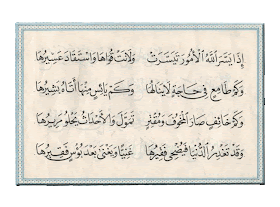 إِذَا يَسَّرَ اللَّهُ الْأُمُورَ تَيَسَّرَتْ وَلَانَتْ قُوَاهَا وَاسْتَقَادَ عَسِيرُهَا
وَكَمْ طَامِعٍ فِي حَاجَةٍ لَا يَنَالُهَا وَكَمْ يَائِسٍ مِنْهَا أَتَاهُ بَشِيرُهَا
وَكَمْ خَائِفٍ صَارَ الْمَخُوفَ وَمُقْتِرٍ تَمَوَّلَ وَالْأَحْدَاثُ يَحْلُو مَرِيرُهَا
وَقَدْ تَغْدِرُ الدُّنْيَا فَيُضْحِي فَقِيرُهَا غَنِيًّا وَيَغْنَى بَعْدَ بُؤْسٍ فَقِيرُهَا